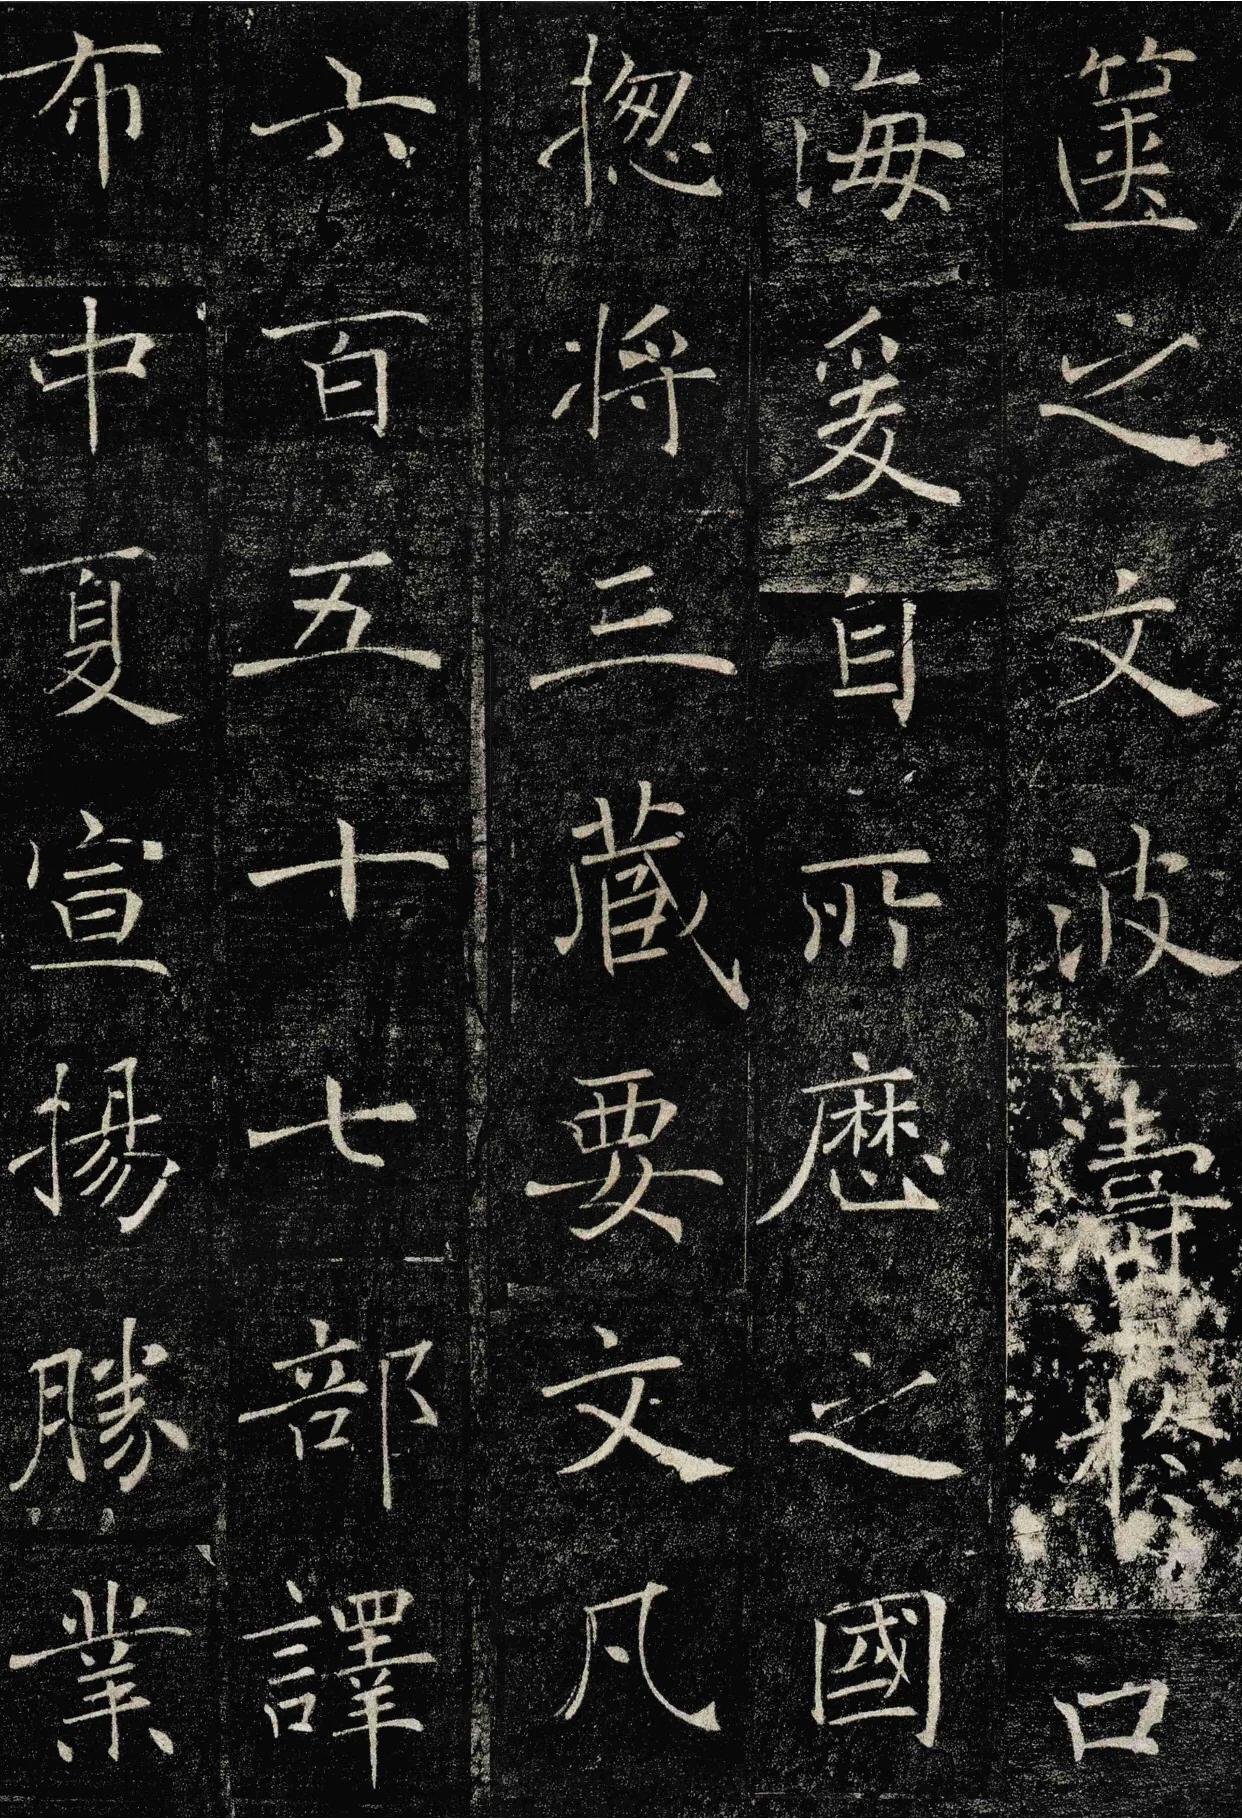 篋之文波濤於口
海爰自所歷之國
揔将三蔵要文凡
六百五十七部譯
布中夏宣揚勝業